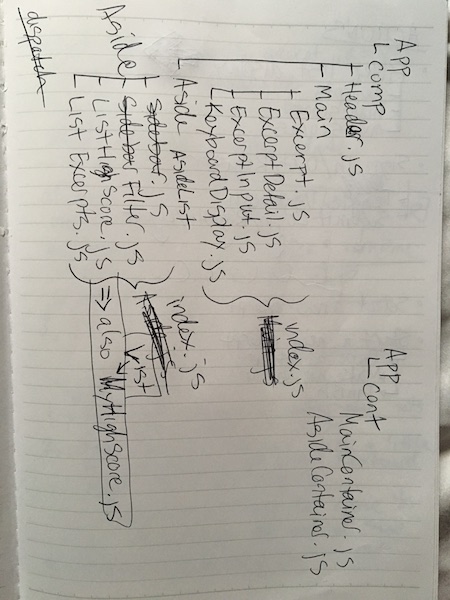 App
comp
Header.js
Main
Excerpt.js
ExcerptDetail.js
ExcerptInput.js
KeyboardDisplay.js
index.js
Aside AsideList
Aside
Sidebar.js
Sidebar Filter.js
ListHighScore.js
List Excerpts.js
index.js
List
=> also MyHighScore.js
dispatch
App
cont
MainContainer.js
AsideContainer.js